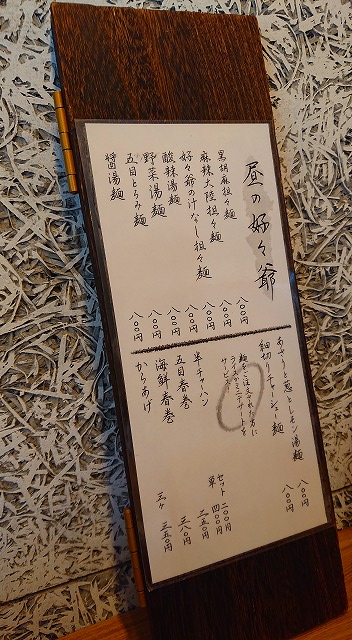 昼の好々爺
黒胡麻担々麺 八〇〇円
麻辣大陸担々麺 八〇〇円
好々爺の汁なし担々麺 八〇〇円
酸辣湯麺 八〇〇円
野菜湯麺 八〇〇円
五目とろみ麺 八〇〇円
醤湯麺 八〇〇円
あさりと葱とレモン湯麺 八〇〇円
細切りチャーシュー麺 八〇〇円
麺をご注文された方に
ライスかミニデザートを
サービス
半チャーハン セット 二〇〇円
単 四〇〇円
五目春巻 三五〇円
海鮮春巻 三八〇円
からあげ 三ヶ 三五〇円